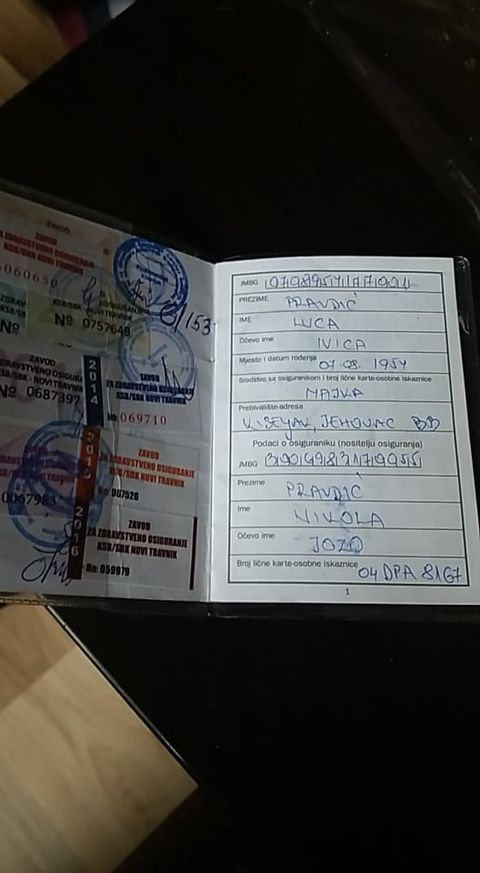 ZAVOD
ZAVOD
ZA ZDRAVSTVENO OSIGURANJE
KSB/SBK NOVI TRAVNIK
060650
№ 0757649
/153
ZAVOD
ZDRAVSTVENO OSIGU
KSB/SBK - NOVI TRAVNIK
№ 0687397
2014
ZAVOD
ZA ZDRAVSTVENO OSIGURANJE
KSB/SBK NOVI TRAVNIK
No: 069710
ZAVOD
ZA ZDRAVSTVENO OSIGURANJE
KSB/SBK NOVI TRAVNIK
No: 067526
006798
2016
ZAVOD
ZA ZDRAVSTVENO OSIGURANJE
KSB/SBK NOVI TRAVNIK
No: 059979
JMBG
PREZIME PRAVDIĆ
IME LUCA
Očevo ime IVICA
Mjesto i datum rođenja 07.08.1954
Srodstvo sa osiguranikom i broj lične karte-osobne iskaznice
MAJKA
Prebivalište-adresa
KISELJAK, JEHOVAC BB
Podaci o osiguraniku (nositelju osiguranja)
JMBG
Prezime PRAVDIĆ
Ime NIKOLA
Očevo ime JOZO
Broj lične karte-osobne iskaznice 04DPA 8167
1